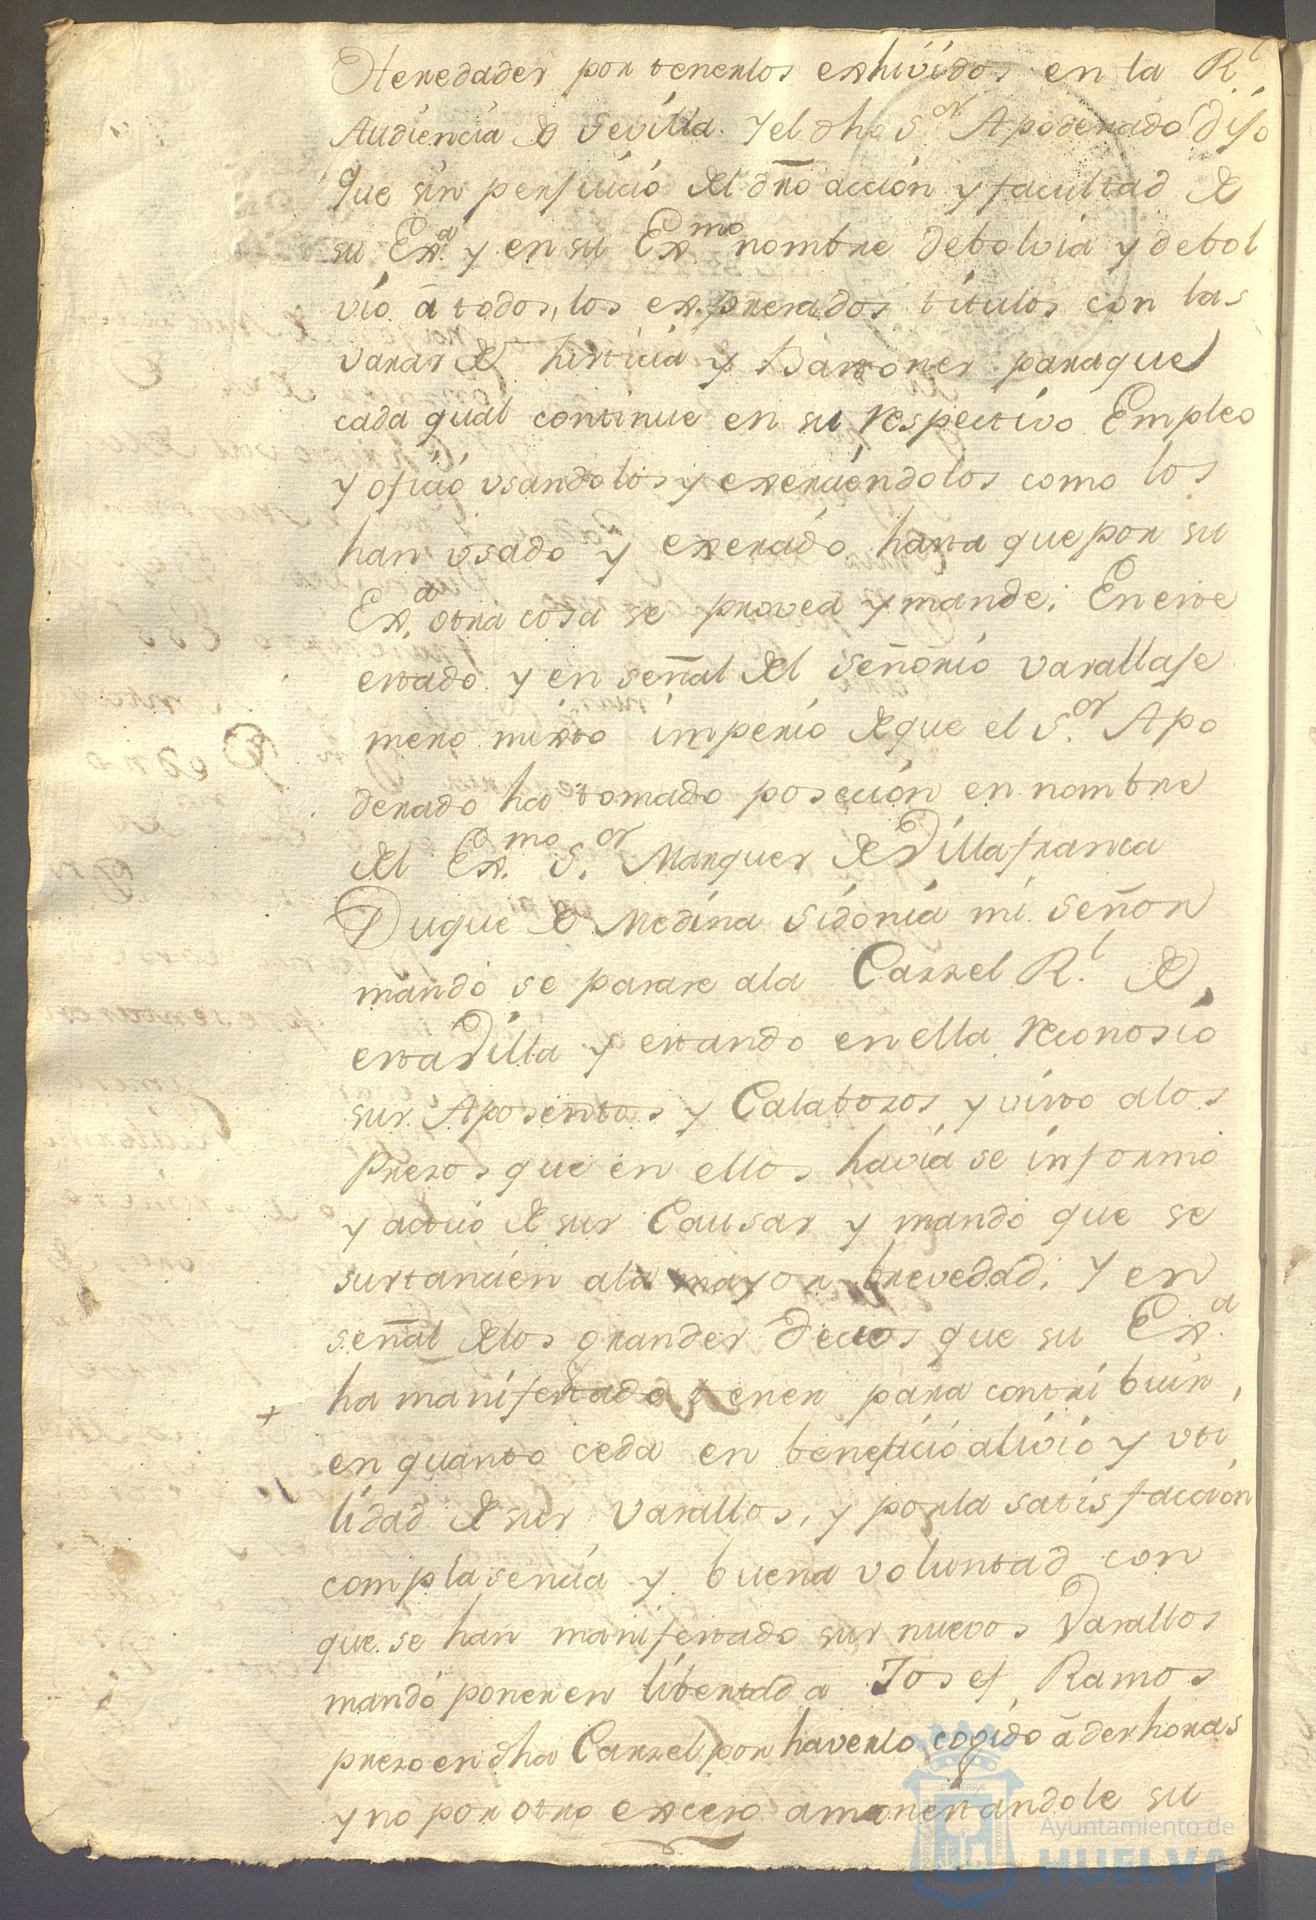 Heredades por tenerlos exhividos en la R.l
Audiencia de Sevilla. Y el dho S.or Apoderado dijo
que sin perjuicio del dro accion y facultad de
su Ex.a y en su Ex.mo nombre debolvia y debol
vio á todos, los expresados titulos con las
varas de Justicia y Bastones paraque
cada qual continue en su respectivo Empleo
y oficio usandolos y exerciendolos como los
han usado y exercido hasta que por su
Ex.a otra cosa se provea y mande. En este
estado y en señal del señorio vasallaje
mero mixto imperio de que el S.or Apo
derado ha tomado posecion en nombre
del Ex.mo S.or Marques de Villafranca
Duque de Medina Sidonia mi señor
mandó se pasase ala Carzel R.l de
esta Villa y estando en ella reconosio
sus Aposentos y Calabosos y visto alos
Presos que en ellos havia se informó
y actuó de sus Causas y mando que se
sustancien ala mayor brevedad. Y en
señal delos grandes deceos que su Ex.a
ha manifestado tener para contribuir,
en quanto ceda en beneficio alivio y uti
lidad de sus vasallos, y por la satisfaccion
complasencia y buena voluntad con
que se han manifestado sus nuevos Vasallos
mandó poner en libertad a Josef Ramos
preso en dha Carzel por haverlo cogido á deshoras
y no por otro exceso amonestandole su
Ayuntamiento de
HUELVA